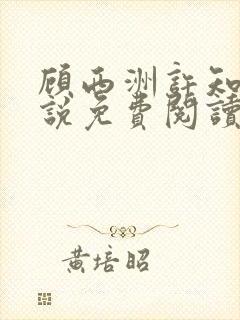 顾西洲許知
說免費閱讀
黃培昭